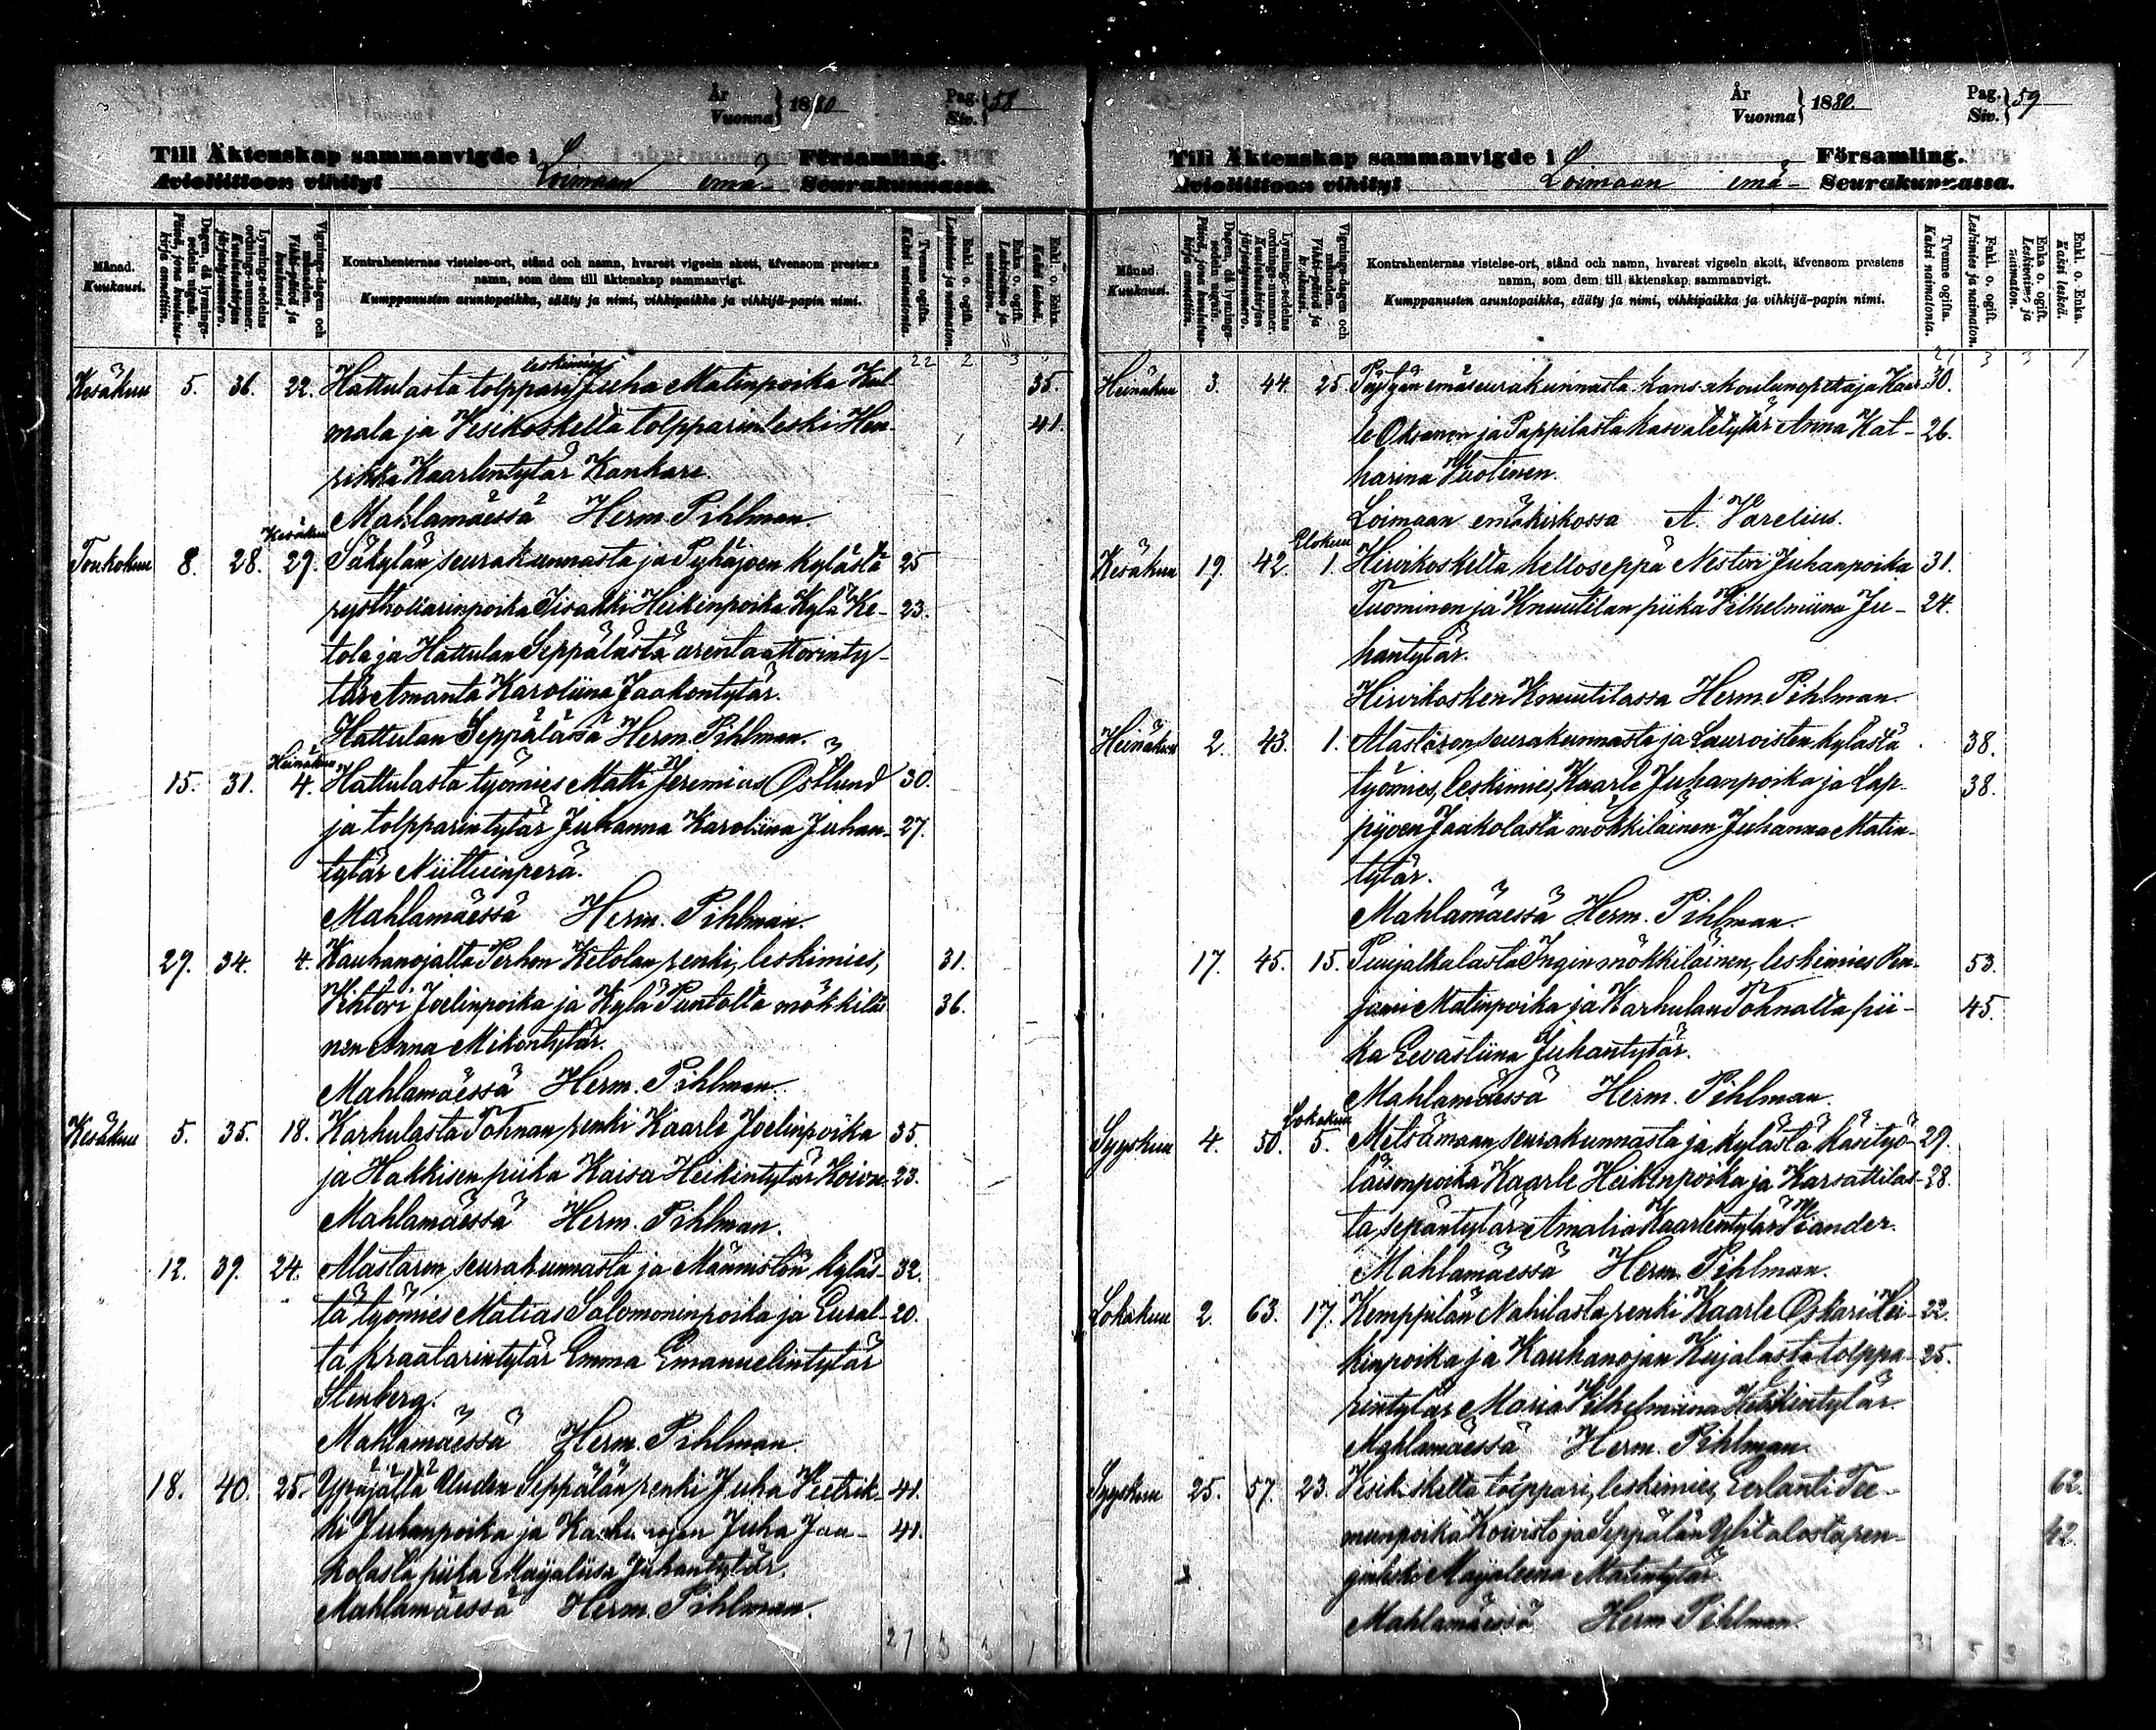 År
Vuonna } 1880
Pag.
Siv. } 58
Till Äktenskap sammanvigde i L Församling.
Avioliittoon vihityt Loimaan emä- Seurakunnassa.
Månad.
Kuukausi.
Dagen, då lysnings-sedeln utgafs.
Lysnings-sedelns ordnings-nummer.
Vignings-dagen och månaden.
Vihki-päivä ja kuukausi.
Kontrahenternas vistelse-ort, stånd och namn, hvarest vigseln skett, äfvensom prestens
namn, som dem till äktenskap sammanvigt.
Kumppanusten asuntopaikka, sääty ja nimi, vihkipaikka ja vihkijä-papin nimi.
Tvenne ogifta.
Kaksi naimatonta.
Enkl. o. ogift.
Leskimies ja naimaton.
Enka o. ogift.
Leskivaimo ja naimaton.
Enkl. o. Enka.
Kaksi leskeä.
22 2 3
leskimies
Kesäkuu 5. 36. 22. Hattulasta tolppari Juha Matinpoika Kul- 35.
mala ja Vesikoskelta tolpparinleski Hen- 41.
rikka Kaarlentytär Kankare.
Mahlamäessä Herm. Pihlman.
Kesäkuu
Toukokuu 8. 28. 29. Säkylän seurakunnasta ja Pyhäjoen kylästä 25
rustholarinpoika Iisakki Heikinpoika Kylä Ke- 23.
tola ja Hattulan Seppälästä arentaattorinty-
tär Amanta Karoliina Jaakontytär.
Hattulan Seppälässä Herm. Pihlman.
Heinäkuu
15. 31. 4. Hattulasta työmies Matti Jeremias Östlund 30.
ja tolpparintytär Juhanna Karoliina Juhan- 27.
tytär Niittuinperä.
Mahlamäessä Herm. Pihlman.
29. 34. 4. Kauhanojalta Perhon Ketolan renki, leskimies, 31.
Vihtori Joelinpoika ja Kylä Puntolta mökkiläi 36.
nen Anna Mikontytär.
Mahlamäessä Herm. Pihlman.
Kesäkuu 5. 35. 18. Karhulasta Töhnan renki Kaarle Joelinpoika 35.
ja Hakkisen piika Kaisa Heikintytär Koivu. 23.
Mahlamäessä Herm. Pihlman.
12. 39. 24. Alastaron seurakunnasta ja Männistön kyläs- 32.
tä työmies Matias Salomoninpoika ja Eural- 20.
ta kraatarintytär Emma Emanuelintytär
Stenberg.
Mahlamäessä Herm. Pihlman.
18. 40. 25. Ypäjältä Uuden Seppälän renki Juha Vietrik- 41.
ki Juhanpoika ja Kauhanojan Juha Jaa- 41.
kolasta piika Maijaliisa Juhantytär.
Mahlamäessä Herm. Pihlman.
27 3 3 1
År
Vuonna } 1880.
Pag.
Siv. } 59
Till Äktenskap sammanvigde i L Församling.
Avioliittoon vihityt Loimaan emä- Seurakunnassa.
Månad.
Kuukausi.
Dagen, då lysnings-sedeln utgafs.
Lysnings-sedelns ordnings-nummer.
Vignings-dagen och månaden.
Vihki-päivä ja kuukausi.
Kontrahenternas vistelse-ort, stånd och namn, hvarest vigseln skett, äfvensom prestens
namn, som dem till äktenskap sammanvigt.
Kumppanusten asuntopaikka, sääty ja nimi, vihkipaikka ja vihkijä-papin nimi.
Tvenne ogifta.
Kaksi naimatonta.
Enkl. o. ogift.
Leskimies ja naimaton.
Enka o. ogift.
Leskivaimo ja naimaton.
Enkl. o. Enka.
Kaksi leskeä.
27 3 3 1
Heinäkuu 3. 44. 25. Pöytyän emäseurakunnasta kansakoulunopettaja Kaar- 30.
le Oksanen ja Pappilasta kasvatetytär Anna Kat- 26.
harina Vuotinen.
Loimaan emäkirkossa A. Varelius.
Elokuu
Kesäkuu 19. 42. 1. Hirvikoskelta kelloseppä Nestori Juhanpoika 31.
Tuominen ja Knuutilan piika Vilhelmiina Ju- 24.
hantytär.
Hirvikosken Knuutilassa Herm. Pihlman.
Heinäkuu 2. 43. 1. Alastaron seurakunnasta ja Lauroisten kylästä 38.
työmies, leskimies, Kaarle Juhanpoika ja Lap- 38.
pijoen Jaakolasta mökkiläinen Juhanna Matin-
tytär.
Mahlamäessä Herm. Pihlman.
17. 45. 15. Puujalkalasta Ingin mökkiläinen, leskimies Pen- 53.
jami Matinpoika ja Karhulan Töhnaltta pii- 45.
ka Eevastiina Juhantytär.
Mahlamäessä Herm. Pihlman.
Lokakuu
Syyskuu 4. 50. 5. Metsämaan seurakunnasta ja kylästä käsityö- 29.
läisenpoika Kaarle Heikinpoika ja Karsattilas- 28.
ta sepäntytär Amalia Kaarlentytär
Mahlamäessä Herm. Pihlman.
Lokakuu 2. 63. 17. Kemppilän Nahilasta renki Kaarle Oskari Hei- 22.
kinpoika ja Kauhanojan Kujalasta tolppa- 25.
rintytär Maria Vilhelmiina Heikintytär.
Mahlamäessä Herm. Pihlman.
Syyskuu 25. 57. 23. Vesikoskelta tolppari, leskimies, Eerlanti Tee- 62.
munpoika Koivisto ja Seppälän Ylitalosta ren- 42.
ginleski Maijaleena Matintytär.
Mahlamäessä Herm. Pihlman.
31 5 3 2